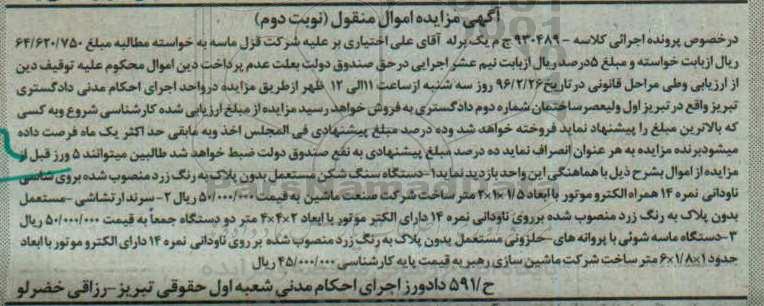 آگهی مزایده اموال منقول (نوبت دوم)
درخصوص پرونده اجرائی کلاسه - ۹۳۰۴۸۹ ج م یک برله آقای علی اختیاری بر علیه شرکت قزل ماسه به خواسته مطالبه مبلغ ۶۴/۶۲۰/۷۵۰
ریال ازبابت خواسته و مبلغ ۵درصدریال ازبابت نیم عشر اجرایی درحق صندوق دولت بعلت عدم پرداخت دین اموال محکوم علیه توقیف دین
از ارزیابی وطی مراحل قانونی درتاریخ ۹۶/۲/۲۶ روز سه شنبه ازساعت ۱۱الی ۱۲ ظهر ازطریق مزایده درواحد اجرای احکام مدنی دادگستری
تبریز واقع در تبریز اول ولیعصر ساختمان شماره دوم دادگستری به فروش خواهد رسید مزایده از مبلغ ارزیابی شده کارشناسی شروع وبه کسی
که بالاترین مبلغ را پیشنهاد نماید فروخته خواهد شد وده درصد مبلغ پیشنهادی فی المجلس اخذ وبه مابقی حد اکثر یک ماه فرصت داده
میشود برنده مزایده به هر عنوان انصراف نماید ده درصد مبلغ پیشنهادی به نفع صندوق دولت ضبط خواهد شد طالبین میتوانند ۵ ورز قبل از
مزایده از اموال بشرح ذیل با هماهنگی این واحد بازدید نمایند ۱-دستگاه سنگ شکن مستعمل بدون پلاک به رنگ زرد منصوب شده بروی شاسی
ناودانی نمره ۱۴ همراه الکترو موتور با ابعاد ۱/۵×۱×۴ متر ساخت شرکت صنعت ماشین به قیمت ۵۰/۰۰۰/۰۰۰ ریال ۲-سرندارتشاشی -مستعمل
بدون پلاک به رنگ زرد منصوب شده برروی ناودانی نمره ۱۴ دارای الکتر موتور با ابعاد ۲×۴×۴ متر دو دستگاه جمعاً به قیمت ۵۰/۰۰۰/۰۰۰ ریال
۳-دستگاه ماسه شوئی با پروانه های-حلزونی مستعمل بدون پلاک به رنگ زرد منصوب شده بر روی ناودانی نمره ۱۴ دارای الکترو موتور با ابعاد
حدود ۱×۱/۸×۶ متر ساخت شرکت ماشین سازی رهبر به قیمت پایه کارشناسی ۴۵/۰۰۰/۰۰۰ ریال
ح/۵۹۱ دادورز اجرای احکام مدنی شعبه اول حقوقی تبریز -رزاقی خضرلو